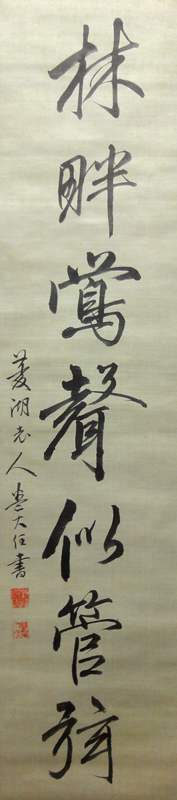 林畔鶯聲似管弦
菱湖老人巻大任書